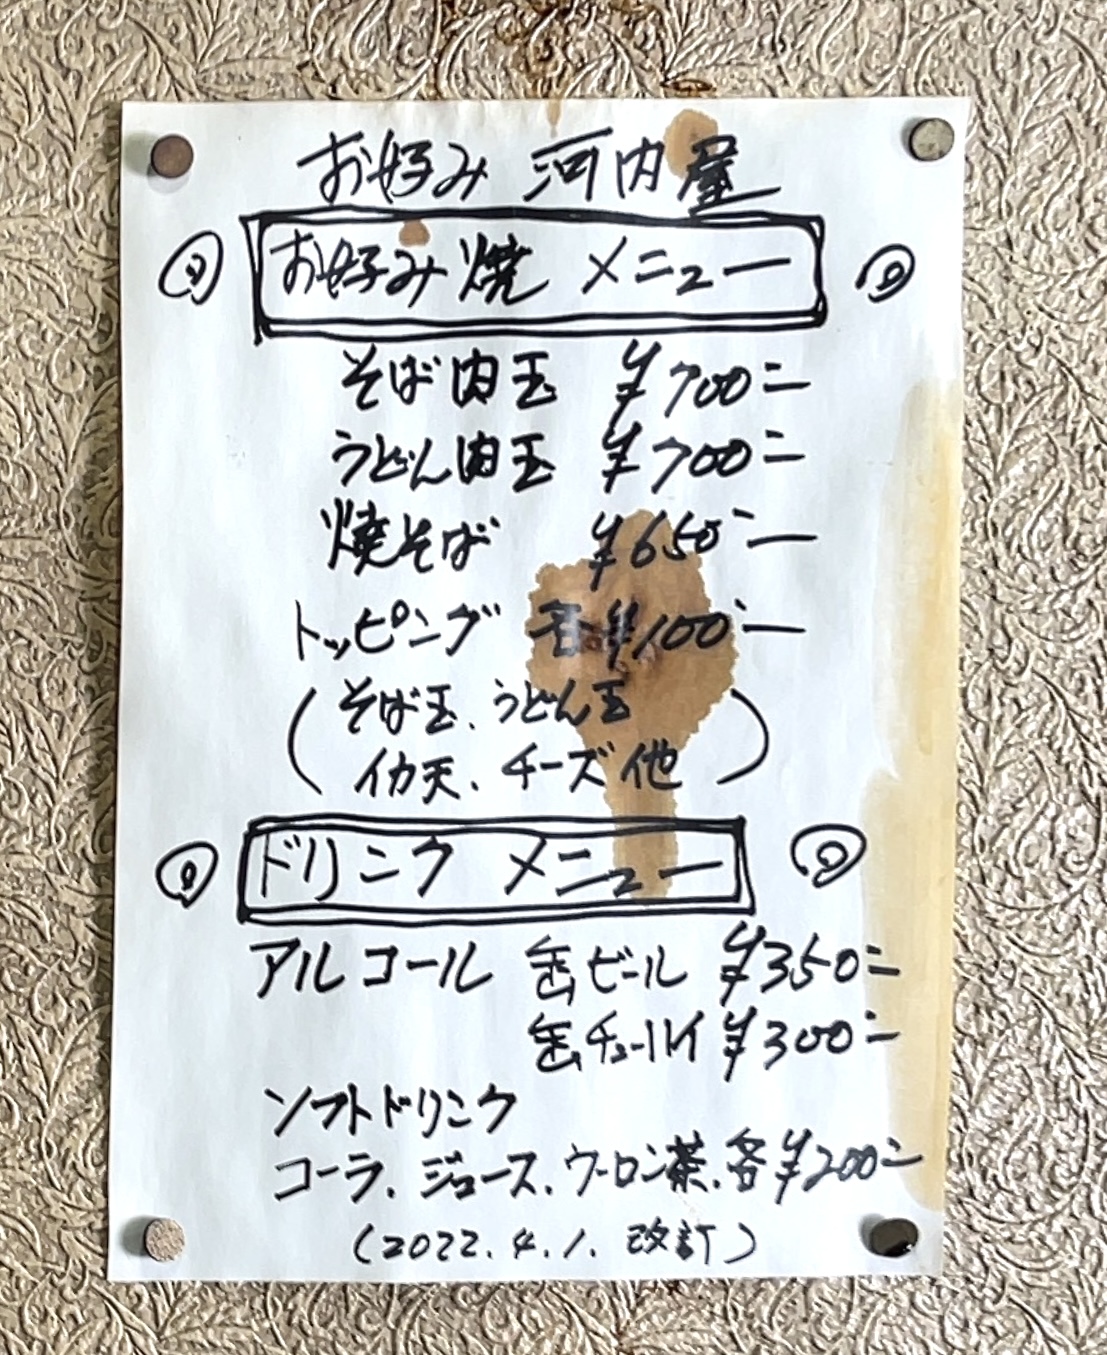 お好み 河内屋
お好み焼 メニュー
そば肉玉 ¥700ー
うどん肉玉 ¥700ー
焼そば ¥650ー
トッピング 各¥100ー
(そば玉、うどん玉
イカ天、チーズ他)
ドリンク メニュー
アルコール 缶ビール ¥350ー
缶チューハイ ¥300ー
ソフトドリンク
コーラ、ジュース、ウーロン茶、各¥200ー
(2022.4.1.改訂)